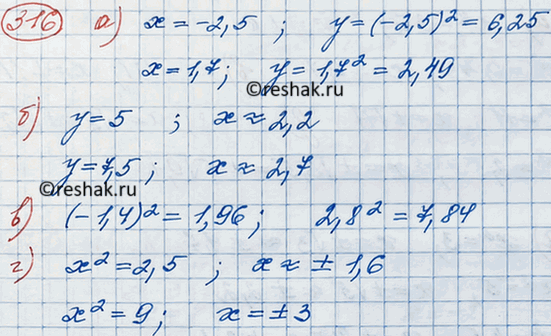 316 а) x = -2,5 ; y = (-2,5)² = 6,25
x = 1,7; y = 1,7² = 2,49
©reshak.ru
б) y = 5 ; x ≈ 2,2
y = 7,5; x ≈ 2,7
©reshak.ru
в) (-1,4)² = 1,96; 2,8² = 7,84
г) x² = 2,5 ; x ≈ ± 1,6
x² = 9; x = ± 3